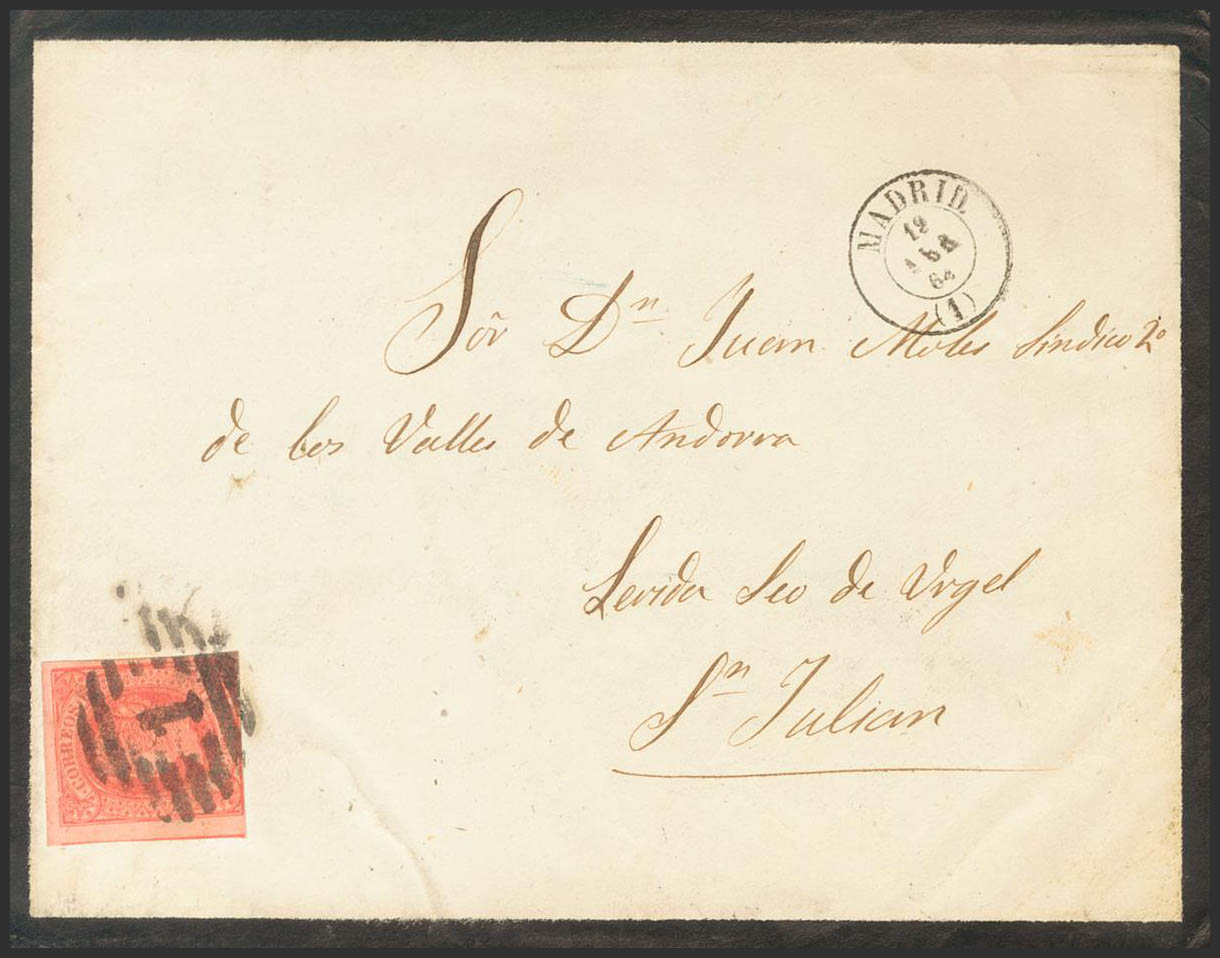 MADRID
19
64
(1)
Sõr Dn Juan Moles Sindico 2º
de los Valles de Andorra
Lerida Seo de Urgel
Sn Julian
CORREOS
1